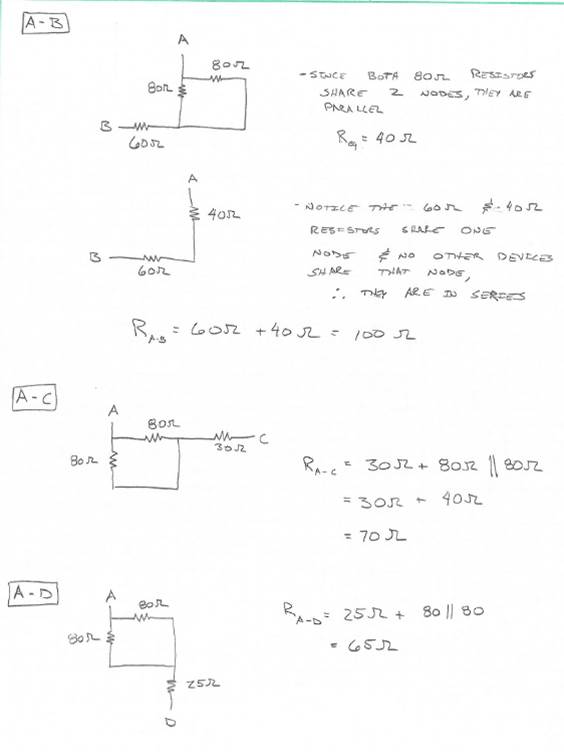 A-B
A
80Ω
80Ω
B
60Ω
- SINCE BOTH 80Ω RESISTORS
SHARE 2 NODES, THEY ARE
PARALLEL
Req = 40Ω
A
40Ω
B
60Ω
- NOTICE THE 60Ω & 40Ω
RESISTORS SHARE ONE
NODE & NO OTHER DEVICES
SHARE THAT NODE,
∴ THEY ARE IN SERIES
RA-B = 60Ω + 40Ω = 100 Ω
A-C
A
80Ω
80Ω
30Ω
C
RA-C = 30Ω + 80Ω || 80Ω
= 30Ω + 40Ω
= 70Ω
A-D
A
80Ω
80Ω
25Ω
D
RA-D = 25Ω + 80 || 80
= 65Ω